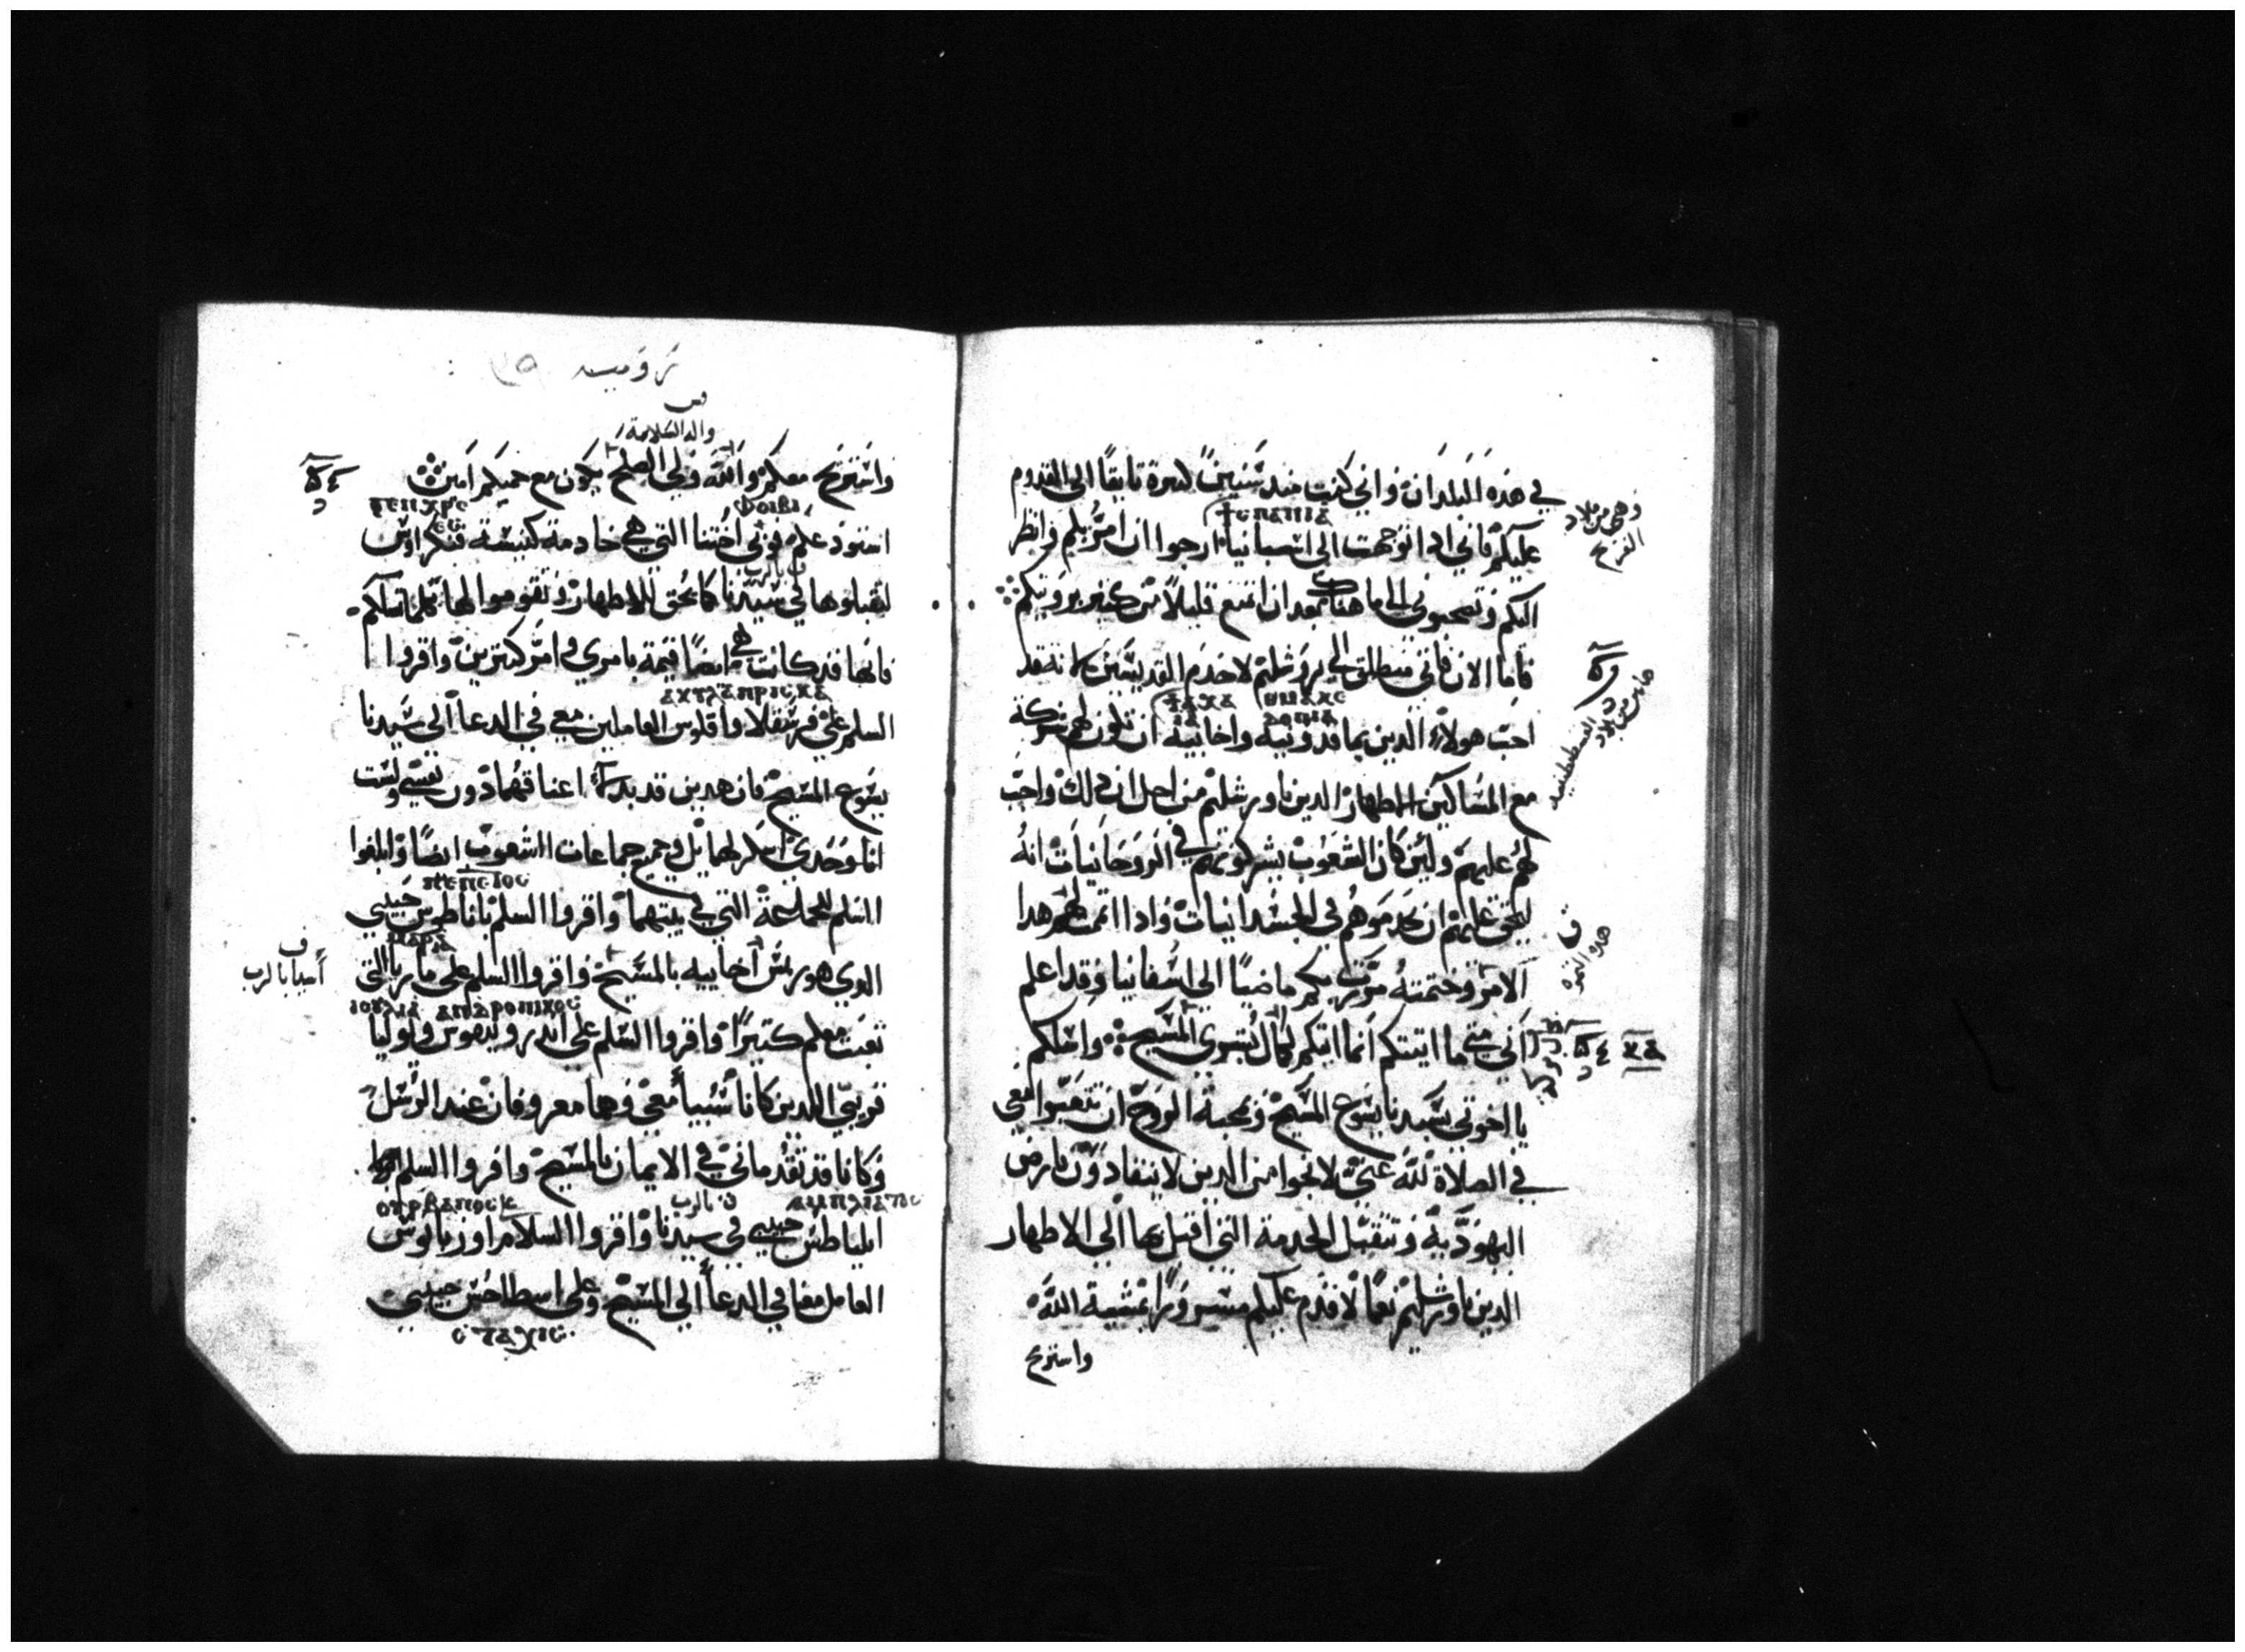 في هذه البلدان واني كنت منذ سنين كثيرة تايقا الى القدوم
وهي من بلاد
الفرنج
ϯⲥⲡⲁⲛⲓⲁ
عليكم فاني اذا توجهت الى اسبانيا ارجوا ان امر بكم وانظر
اليكم وتصحبوني الى ما هناك بعد ان اتمتع قليلا من كثير برويتكم
فاما الان فاني منطلق الى يروشليم لاخدم القديسين لانه قد
احب هولاء الدين بماقدونيه واخاييه ان تكون لهم شركة
مع المساكين الاطهار الدين باورشليم من اجل ان ذلك واجب
لهم عليهم ولين كان الشعوب يشركونهم في الروحانيات انه
ليحق عليهم ان يخدموهم في الجسدانيات واذا اتممت لهم هدا
هده الثمرة
الامر وختمته مررت بكم ماضيا الى اسفانيا وقد اعلم
اني متى ما اتيتكم انما اتيكم بكمال بشرى المسيح واسلكم
يا اخوتي بسيدنا يسوع المسيح وبمحبة الروح ان تتعبوا معي
في الصلاة لله عني لانجوا من الدين لا ينقادون بارض
اليهودية وتتقبل الخدمة التي اقبل بها الى الاطهار
الدين باورشليم نعما لاقدم عليكم مسرورا بمشية الله
واستريح
رومية
والد السلامة
واستريح معكم والله ولي الصلح يكون مع جميعكم امين
ⲫⲟⲓⲃⲏ
استودعكم فوبي اختنا التي هي خادمة كنيسة قنكراوس
ف بالرب
لتقبلوها في سيدنا كما يحق للاطهار وتقوموا لها بكلما تسالكم
فانها قد كانت هي ايضا قيمة بامري وامر كثيرين واقروا
ⲁⲕⲩⲗⲁ ⲡⲣⲓⲥⲕⲁ
السلم على فرسقلا واقلوس العاملين معي في الدعا الى سيدنا
يسوع المسيح فان هدين قد بدلا اعناقهما دون نفسي ولست
انا وحدي اشكر لهما بل وجميع جماعات الشعوب ايضا وابلغوا
السلم للجماعة التي في بيتهما واقروا السلم باناطوس حبيبي
ف
اسيا بالرب
الدي هو ريس اخاييه بالمسيح واقروا السلم على ماريا التي
ⲓⲟⲩⲗⲓⲁ ⲁⲛⲇⲣⲟⲛⲓⲕⲟⲥ
تعبت معكم كثيرا واقروا السلم على اندرونيقوس ويوليا
قريبي اللدين كانا سبيا معي وهما معروفان عند الرسل
وكانا قد تقدماني في الايمان بالمسيح واقروا السلم
ⲟⲩⲣⲃⲁⲛⲟⲥ
ف بالرب
امليناطس حبيبي في سيدنا واقروا السلام اوربانوس
العامل معنا في الدعا الى المسيح وعلى اسطاخس حبيبي
ⲥⲧⲁⲭⲓⲥ